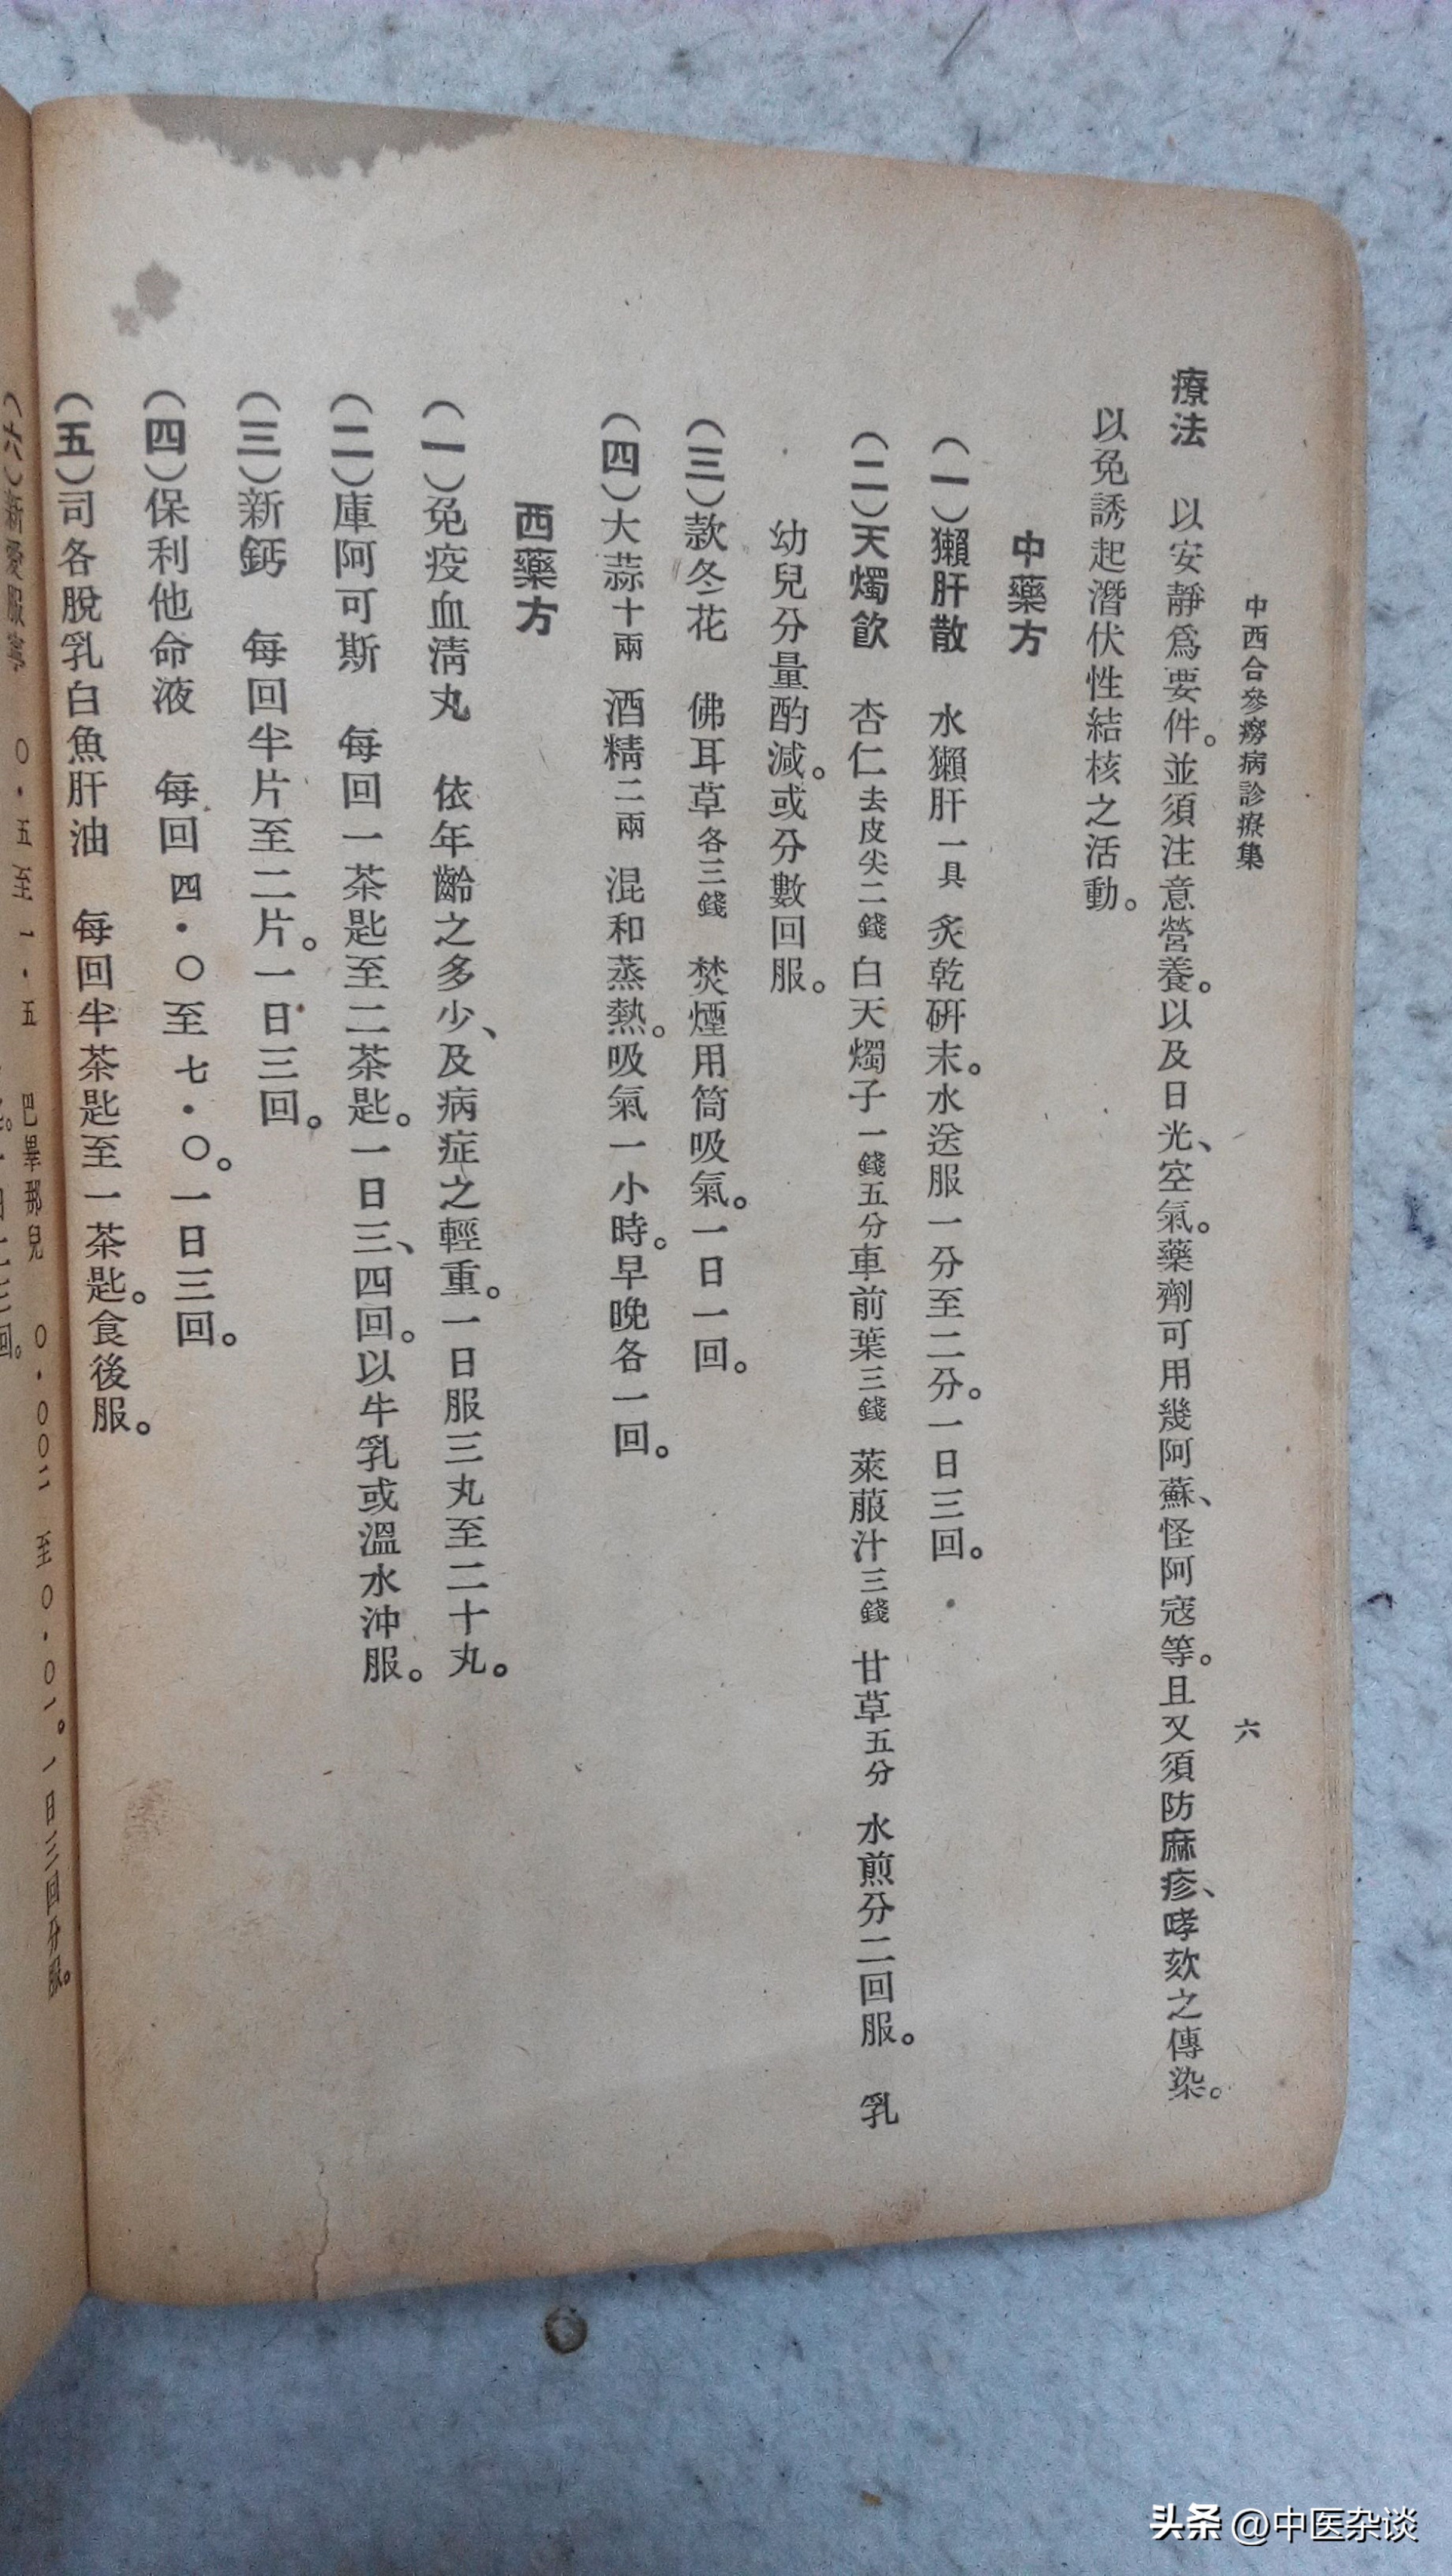 中西合參癆病診療集　六
療法　以安靜爲要件。並須注意營養。以及日光、空氣。藥劑可用幾阿蘇、怪阿寇等。且又須防麻疹、哮欬之傳染。
以免誘起潛伏性結核之活動。
中藥方
（一）獺肝散　水獺肝一具　炙乾研末。水送服一分至二分。一日三回。
（二）天燭飮　杏仁去皮尖二錢　白天燭子一錢五分　車前葉三錢　萊菔汁三錢　甘草五分　水煎分二回服。　乳
幼兒分量酌減。或分數回服。
（三）款冬花　佛耳草各三錢　焚煙用筒吸氣。一日一回。
（四）大蒜十兩　酒精二兩　混和蒸熱。吸氣一小時。早晚各一回。
西藥方
（一）免疫血淸丸　依年齡之多少、及病症之輕重。一日服三丸至二十丸。
（二）庫阿可斯　每回一茶匙至二茶匙。一日三、四回。以牛乳或溫水沖服。
（三）新鈣　每回半片至二片。一日三回。
（四）保利他命液　每回四・〇至七・〇。一日三回。
（五）司各脫乳白魚肝油　每回半茶匙至一茶匙。食後服。
（六）新愛服寧　〇・五至一・五　巴畢那兒　〇・〇〇二至〇・〇一。一日三回分服。
头条 @中医杂谈